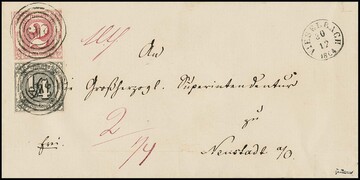 VIESELBACH
30
12
1864
An
die Großherzogl. Superintendentur
zu
Neustadt a/O.
frei.
2
1/4